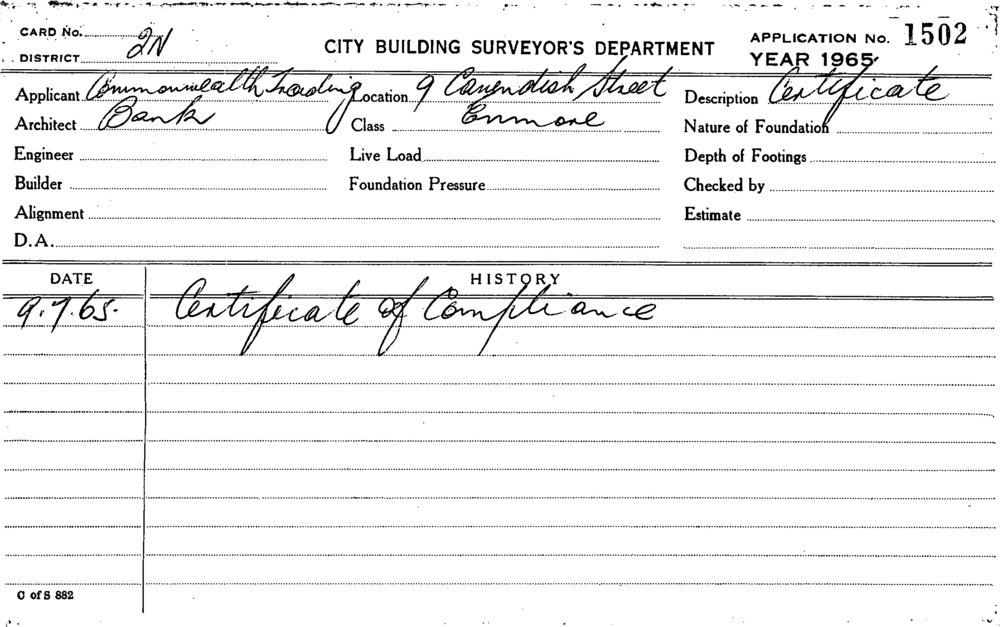 CARD No. 2N
DISTRICT
CITY BUILDING SURVEYOR'S DEPARTMENT
APPLICATION No. 1502
YEAR 1965
Applicant Commonwealth Trading Location 9 Cavendish Street Description Certificate
Architect Bank Class Enmore Nature of Foundation
Engineer Live Load Depth of Footings
Builder Foundation Pressure Checked by
Alignment Estimate
D.A.
DATE HISTORY
9.7.65. Certificate of Compliance
C of S 882